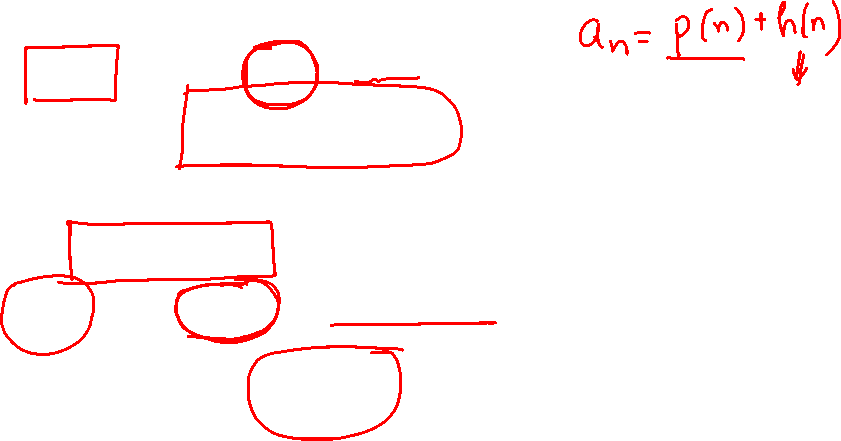 aₙ = p(n) + h(n)